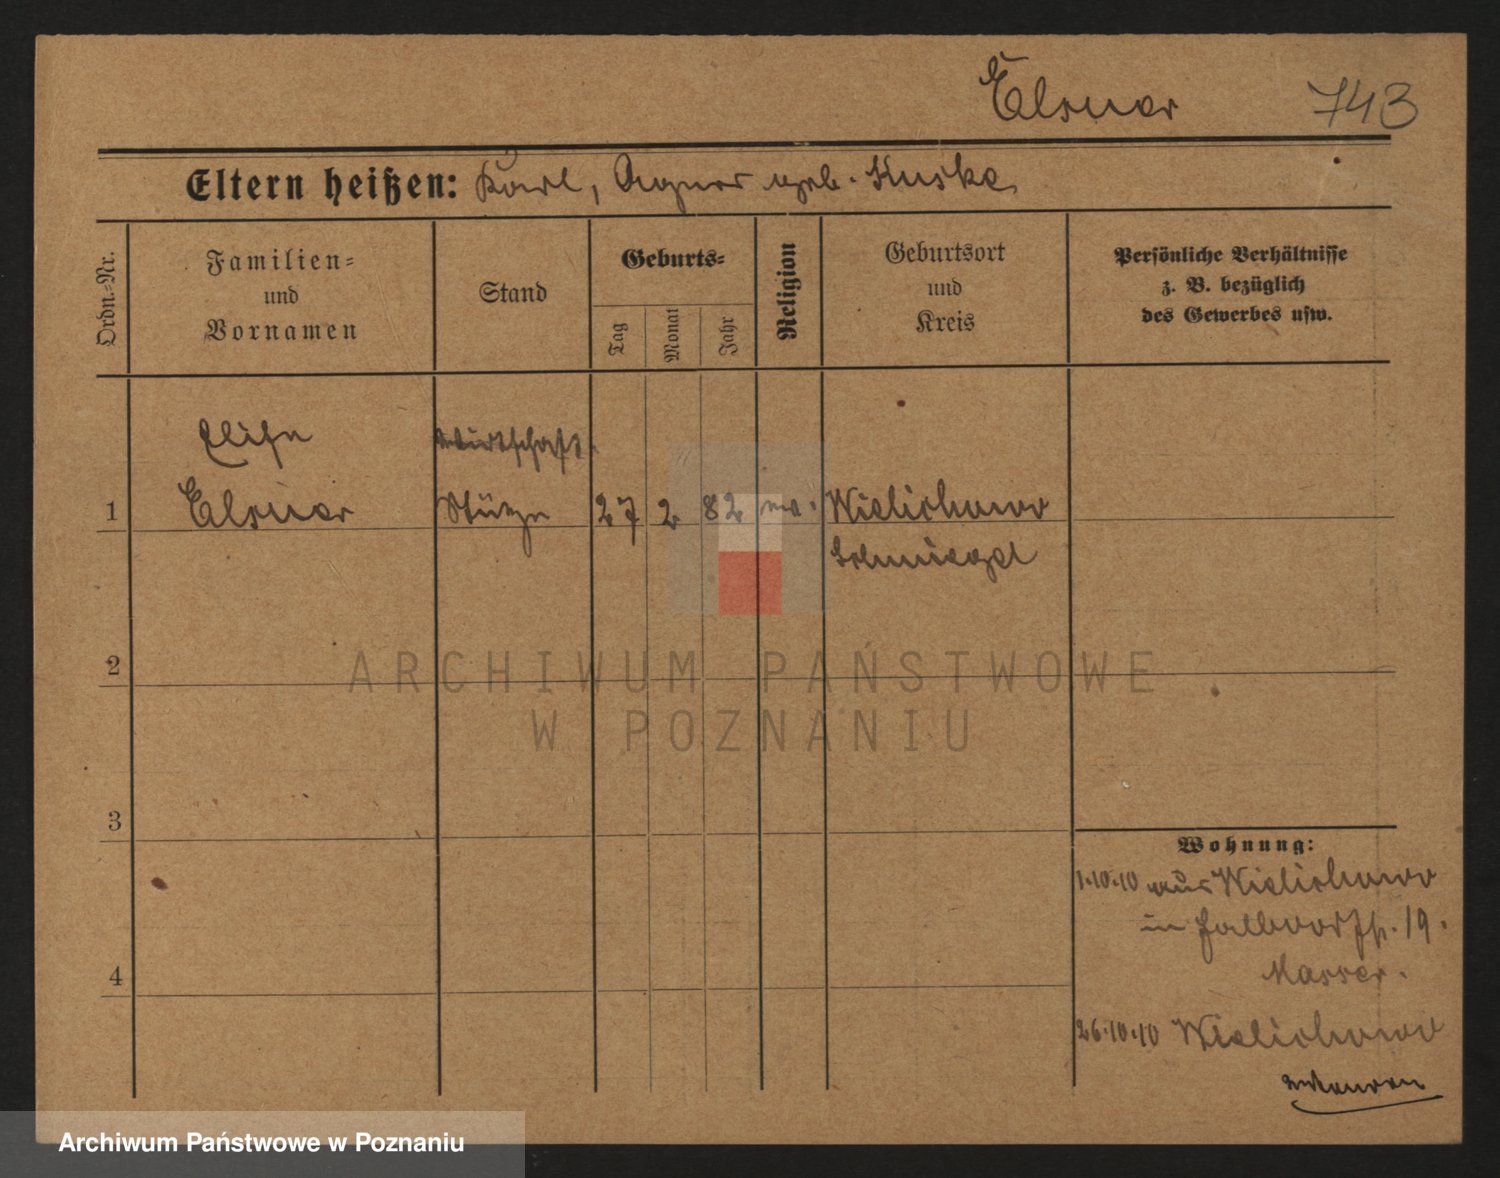 Elsner 743
Eltern heißen: Karl, Agnes geb. Kuske
Ordn.-Nr.
Familien-
und
Vornamen
Stand
Geburts-
Tag
Monat
Jahr
Religion
Geburtsort
und
Kreis
Persönliche Verhältnisse
z. B. bezüglich
des Gewerbes usw.
Elise Wirtschaft.
1 Elsner Stütze 27 2 82 ev. Wielichowo
Schmiegel
2
3
4
Wohnung:
1.10.10 aus Wielichowo
in 19.
26.10.10 Wielichowo
ARCHIWUM PAŃSTWOWE
W POZNANIU
Archiwum Państwowe w Poznaniu